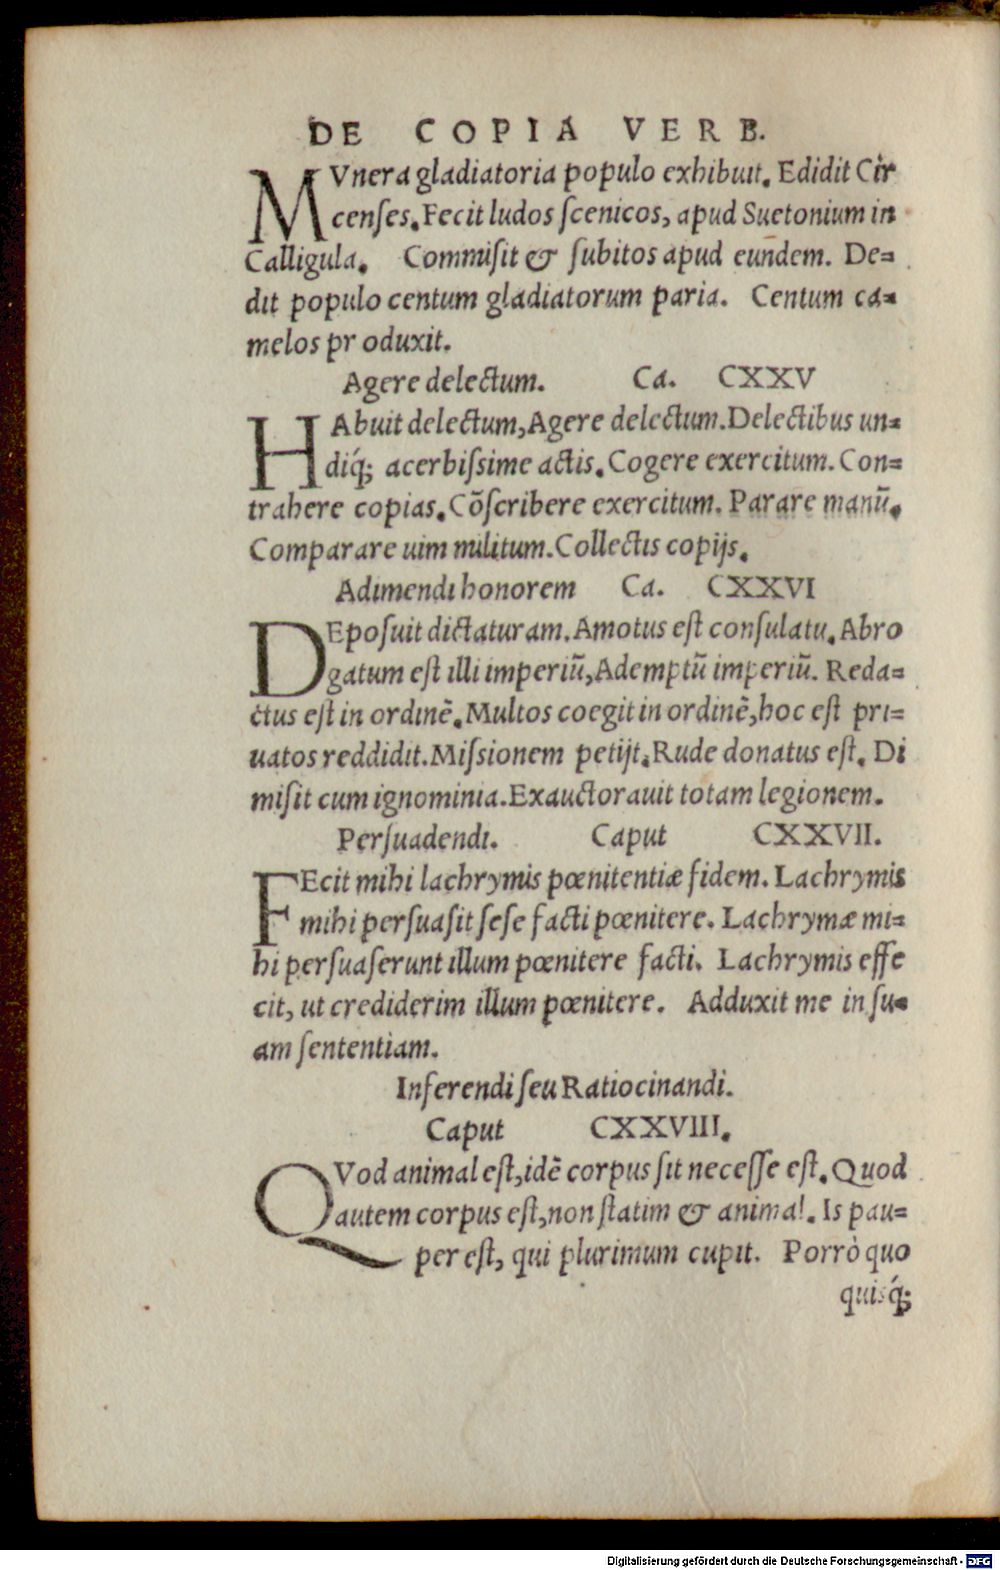 DE COPIA VERB.
MVnera gladiatoria populo exhibuit. Edidit Cir
censes. Fecit ludos ſcenicos, apud Suetonium in
Calligula. Commiſit & ſubitos apud eundem. De=
dit populo centum gladiatorum paria. Centum ca=
melos pr oduxit.
Agere delectum. Ca. CXXV
HAbuit delectum, Agere delectum. Delectibus un=
diq́; acerbiſsime actis. Cogere exercitum. Con=
trahere copias. Cōſcribere exercitum. Parare manū.
Comparare uim militum. Collectis copijs.
Adimendi honorem Ca. CXXVI
DEpoſuit dictaturam. Amotus eſt conſulatu. Abro
gatum eſt illi imperiū, Ademptū imperiū. Reda=
ctus eſt in ordinē. Multos coegit in ordinē, hoc eſt pri=
uatos reddidit. Miſsionem petijt. Rude donatus eſt. Di
miſit cum ignominia. Exauctorauit totam legionem.
Perſuadendi. Caput CXXVII.
FEcit mihi lachrymis pœnitentiæ fidem. Lachrymis
mihi perſuaſit ſeſe facti pœnitere. Lachrymæ mi=
hi perſuaſerunt illum pœnitere facti. Lachrymis effe
cit, ut crediderim illum pœnitere. Adduxit me in ſu=
am ſententiam.
Inferendi ſeu Ratiocinandi.
Caput CXXVIII.
QVod animal eſt, idē corpus ſit neceſſe eſt. Quod
autem corpus eſt, non ſtatim & animal. Is pau=
per eſt, qui plurimum cupit. Porrò quo
quiſq́;
Digitalisierung gefördert durch die Deutsche Forschungsgemeinschaft - DFG